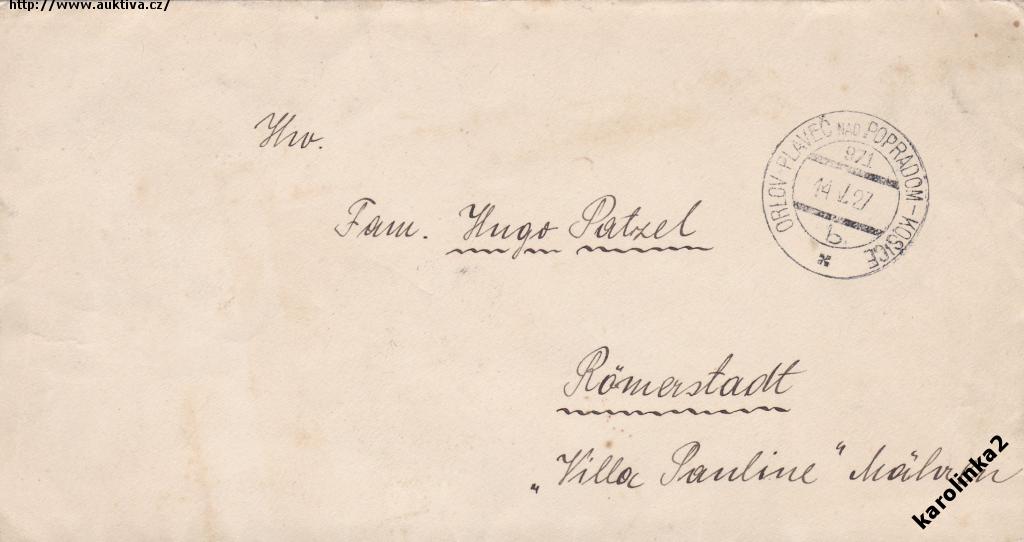 http://www.auktiva.cz/
Hw.
Fam. Hugo Patzel
ORLOV PLAVEČ NAD POPRADOM - KOŠICE
971
14 V. 27
b
Römerstadt
„Villa Pauline“ Mähren
karolinka2